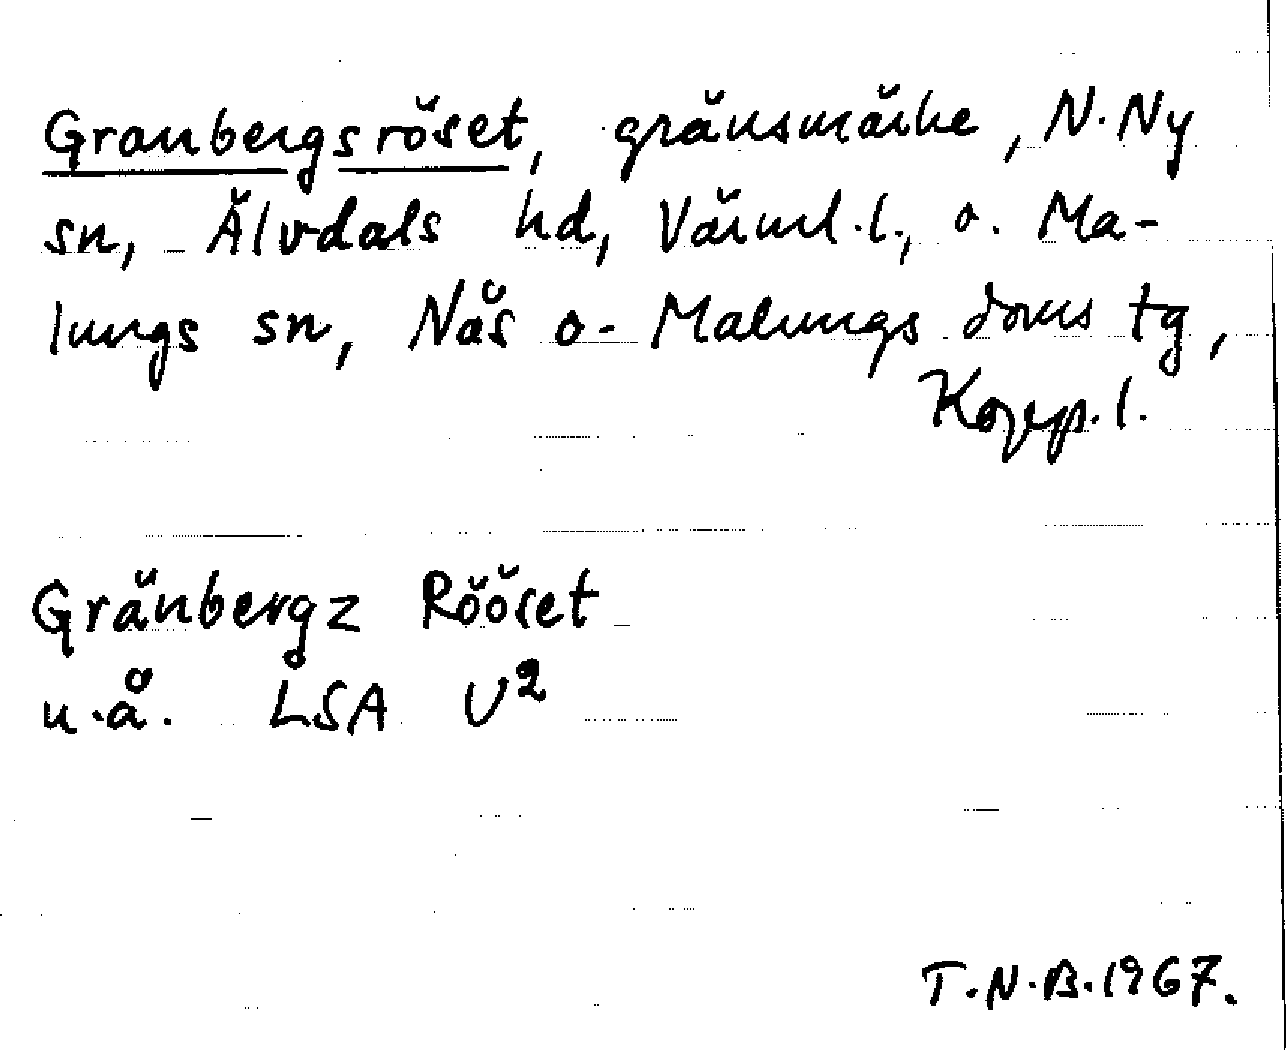 Granbergsröset, gränsmärke, N. Ny
sn, Älvdals hd, Värml. l., o. Ma-
lungs sn, Näs o. Malungs doms tg,
Kopp. l.
Gränbergz Rööset
u.å. LSA U²
T.N.B. 1967.